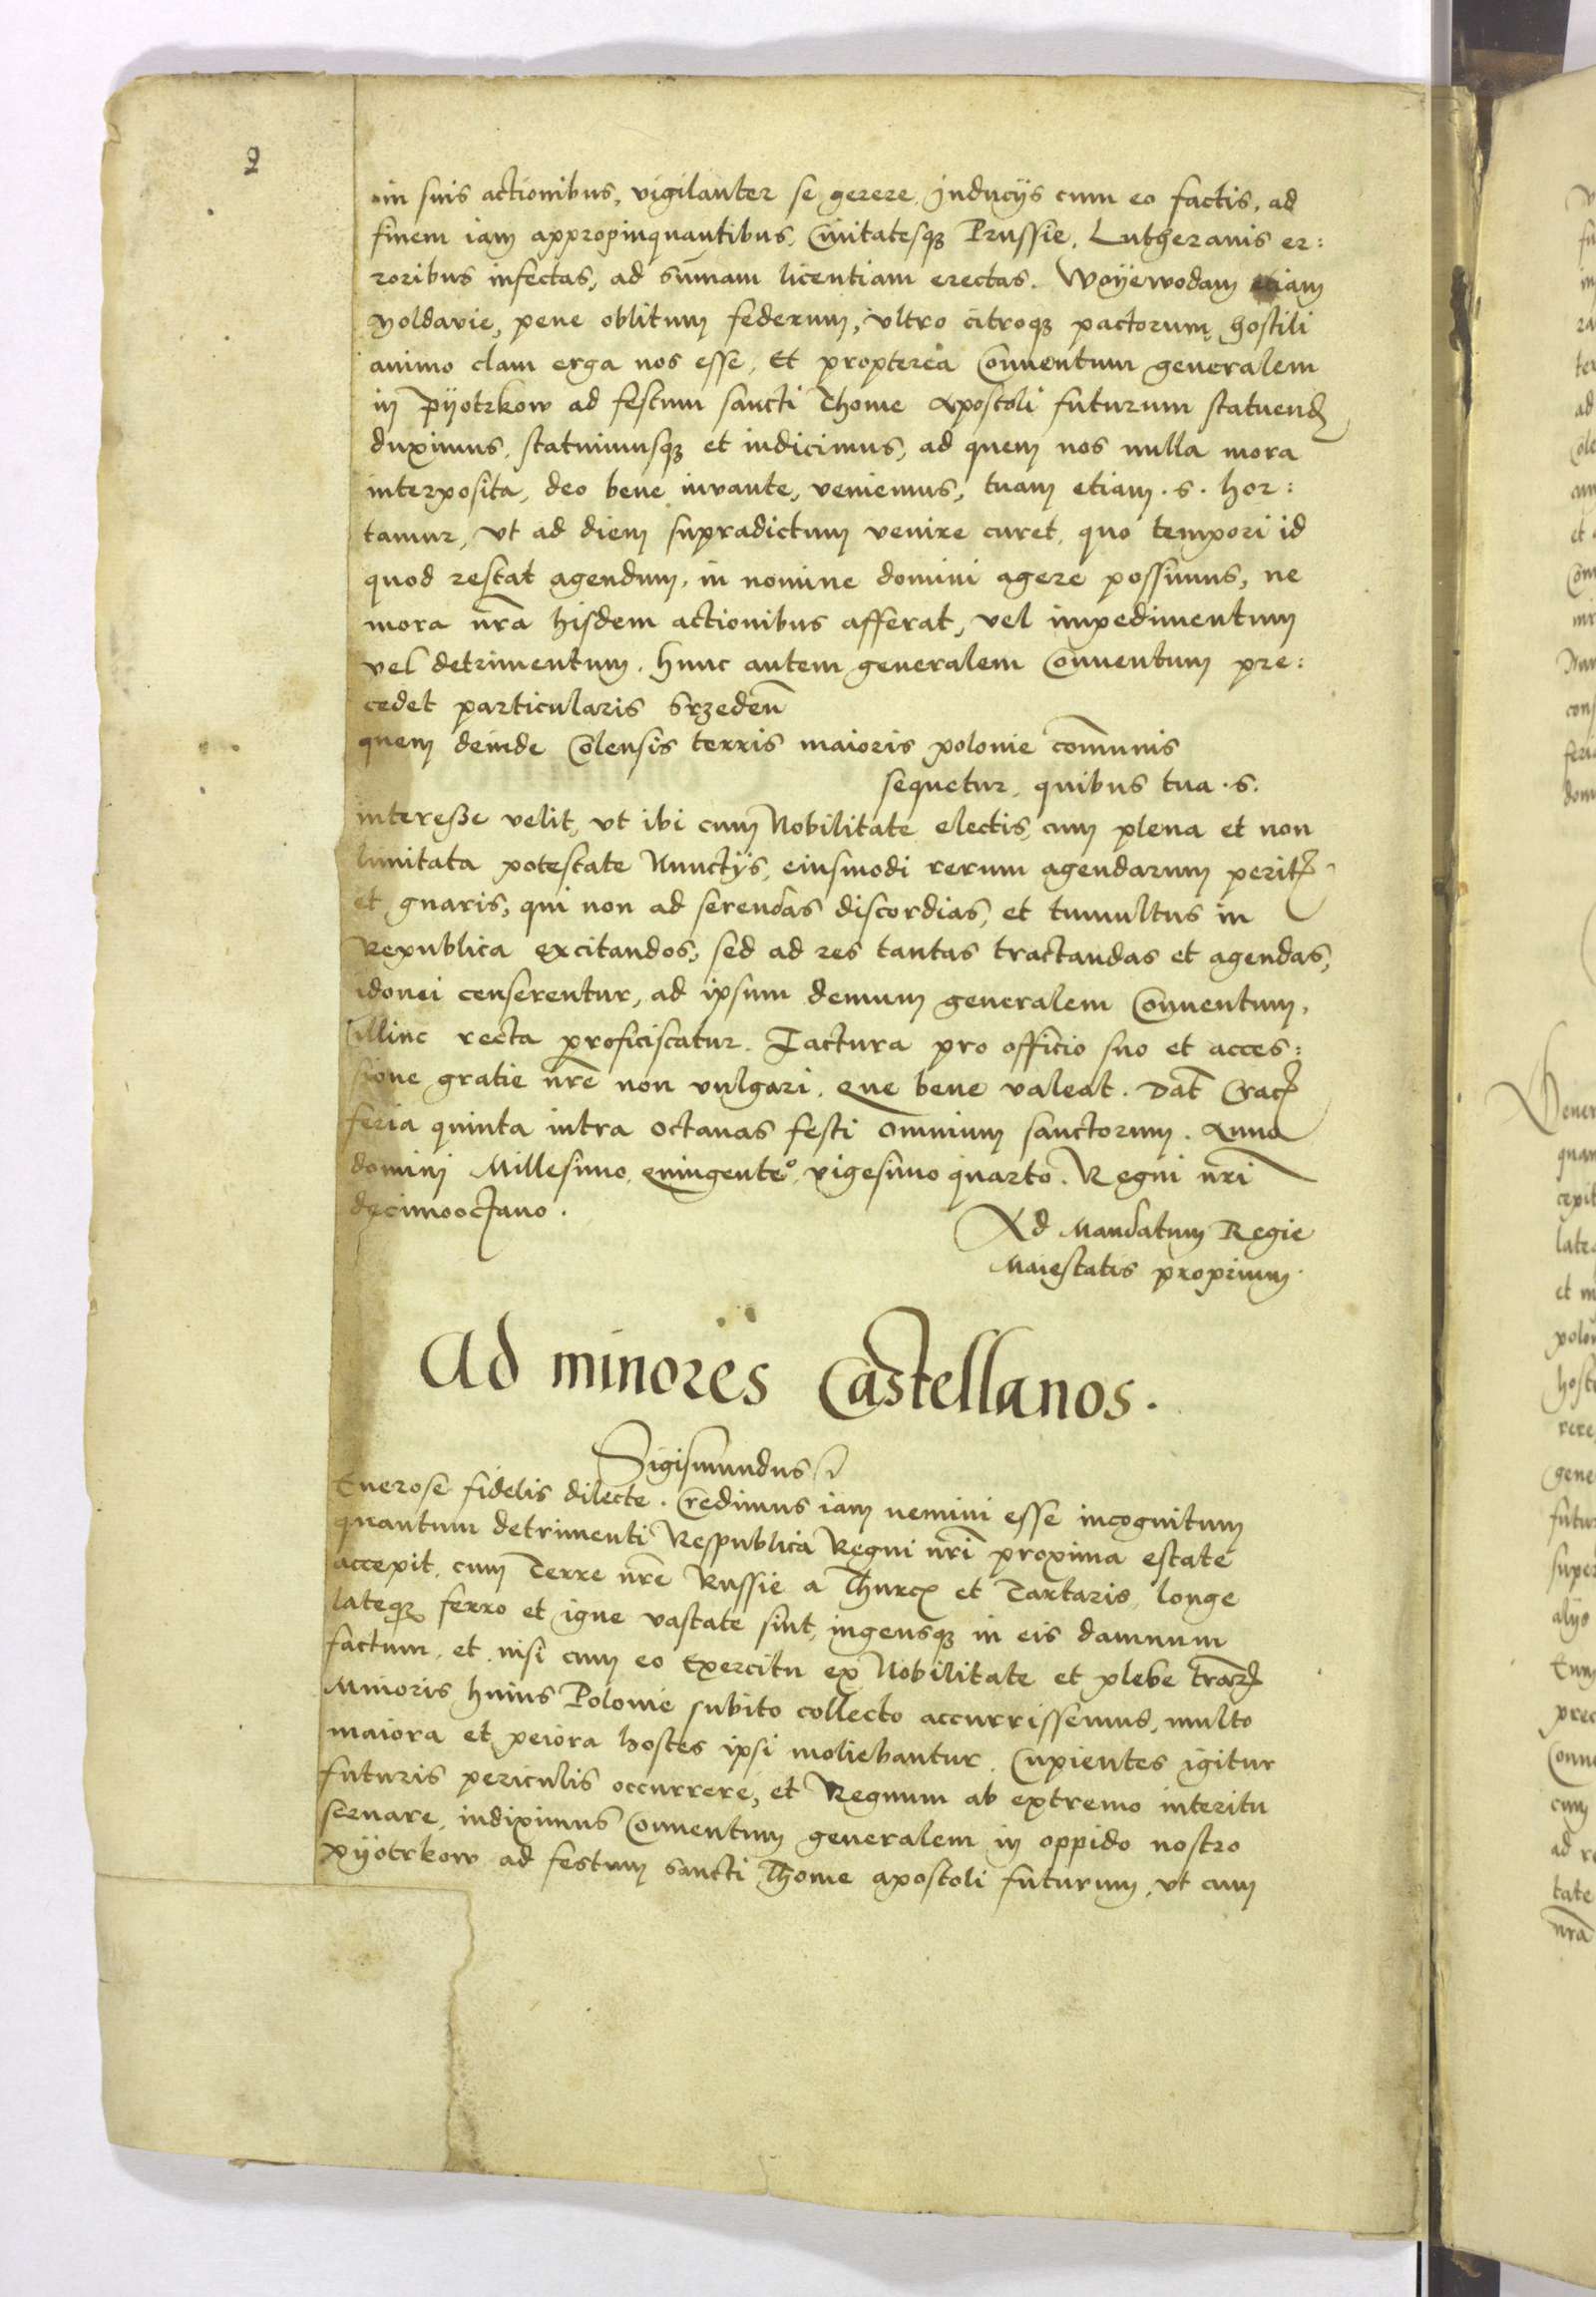 2
in suis actionibus, vigilanter se gerere. Inducijs cum eo factis, ad
finem iam appropinquantibus, Civitatesq; Prussie, Lutheranis er:
roribus infectas, ad sum̄am licentiam erectas. Woyewodam etiam
Moldavie, pene oblitum federum, ultro citroq; pactorum, hostili
animo clam erga nos esse, Et propterea Conventum generalem
in Pyotrkow ad festum sancti Thome Apostoli futurum statuend
duximus, statuimusq; et indicimus, ad quem nos nulla mora
interposita, deo bene iuvante, veniemus, tuam etiam .s. hor:
tamur, vt ad diem supradictum venire curet, quo tempori id
quod restat agendum, in nomine domini agere possimus, ne
mora nr̄a hisdem actionibus afferat, vel impedimentum
vel detrimentum. Hunc autem generalem Conventum pre:
cedet particularis Srzeden̄
quem deinde Colensis terris maioris polonie com̄unis
sequetur, quibus tua .s.
interesse velit, vt ibi cum Nobilitate electis, cum plena et non
limitata potestate Nunctijs, eiusmodi rerum agendarum perit
et gnaris, qui non ad serendas discordias, et tumultus in
Republica excitandos, sed ad res tantas tractandas et agendas,
idonei censerentur, ad ipsum demum generalem Conventum,
illinc recta proficiscatur. Factura pro officio suo et acces:
sione gratie nr̄e non vulgari. Que bene valeat. Dat̄ Crac
feria quinta intra octauas festi Omnium sanctorum. Anno
domini Millesimo, quingenteᵒ, vigesimo quarto. Regni nr̄i
decimooctauo.
Ad Mandatum Regie
Maiestatis proprium.
Ad minores Castellanos.
Sigismundus
Enerose fidelis dilecte. Credimus iam nemini esse incognitum
quantum detrimenti Respublica Regni nr̄i proxima estate
accepit, cum Terre nr̄e Russie a Thurc et Tartaris, longe
lateq; ferro et igne vastate sint, ingensq; in eis damnum
factum, et nisi cum eo Exercitu ex Nobilitate et plebe trār
Minoris huius Polonie subito collecto accurrissemus, multo
maiora et peiora hostes ipsi moliebantur. Cupientes igitur
futuris periculis occurrere, et Regnum ab extremo interitu
seruare, indiximus Conuentum generalem in oppido nostro
Pyotrkow ad festum Sancti Thome apostoli futurum, vt cum